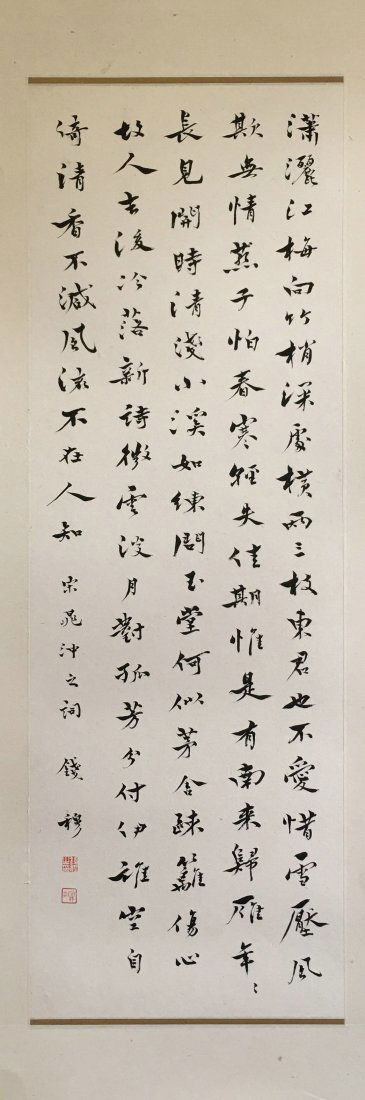 瀟灑江梅向竹梢深處橫兩三枝東君也不愛惜雪壓風
欺無情燕子怕春寒輕失佳期惟是有南來歸雁年〻
長見開時清淺小溪如練問玉堂何似茅舍疎籬傷心
故人去後冷落新詩微雲淡月對孤芳分付伊誰空自
倚清香不減風流不在人知 宋晁沖之詞 錢穆